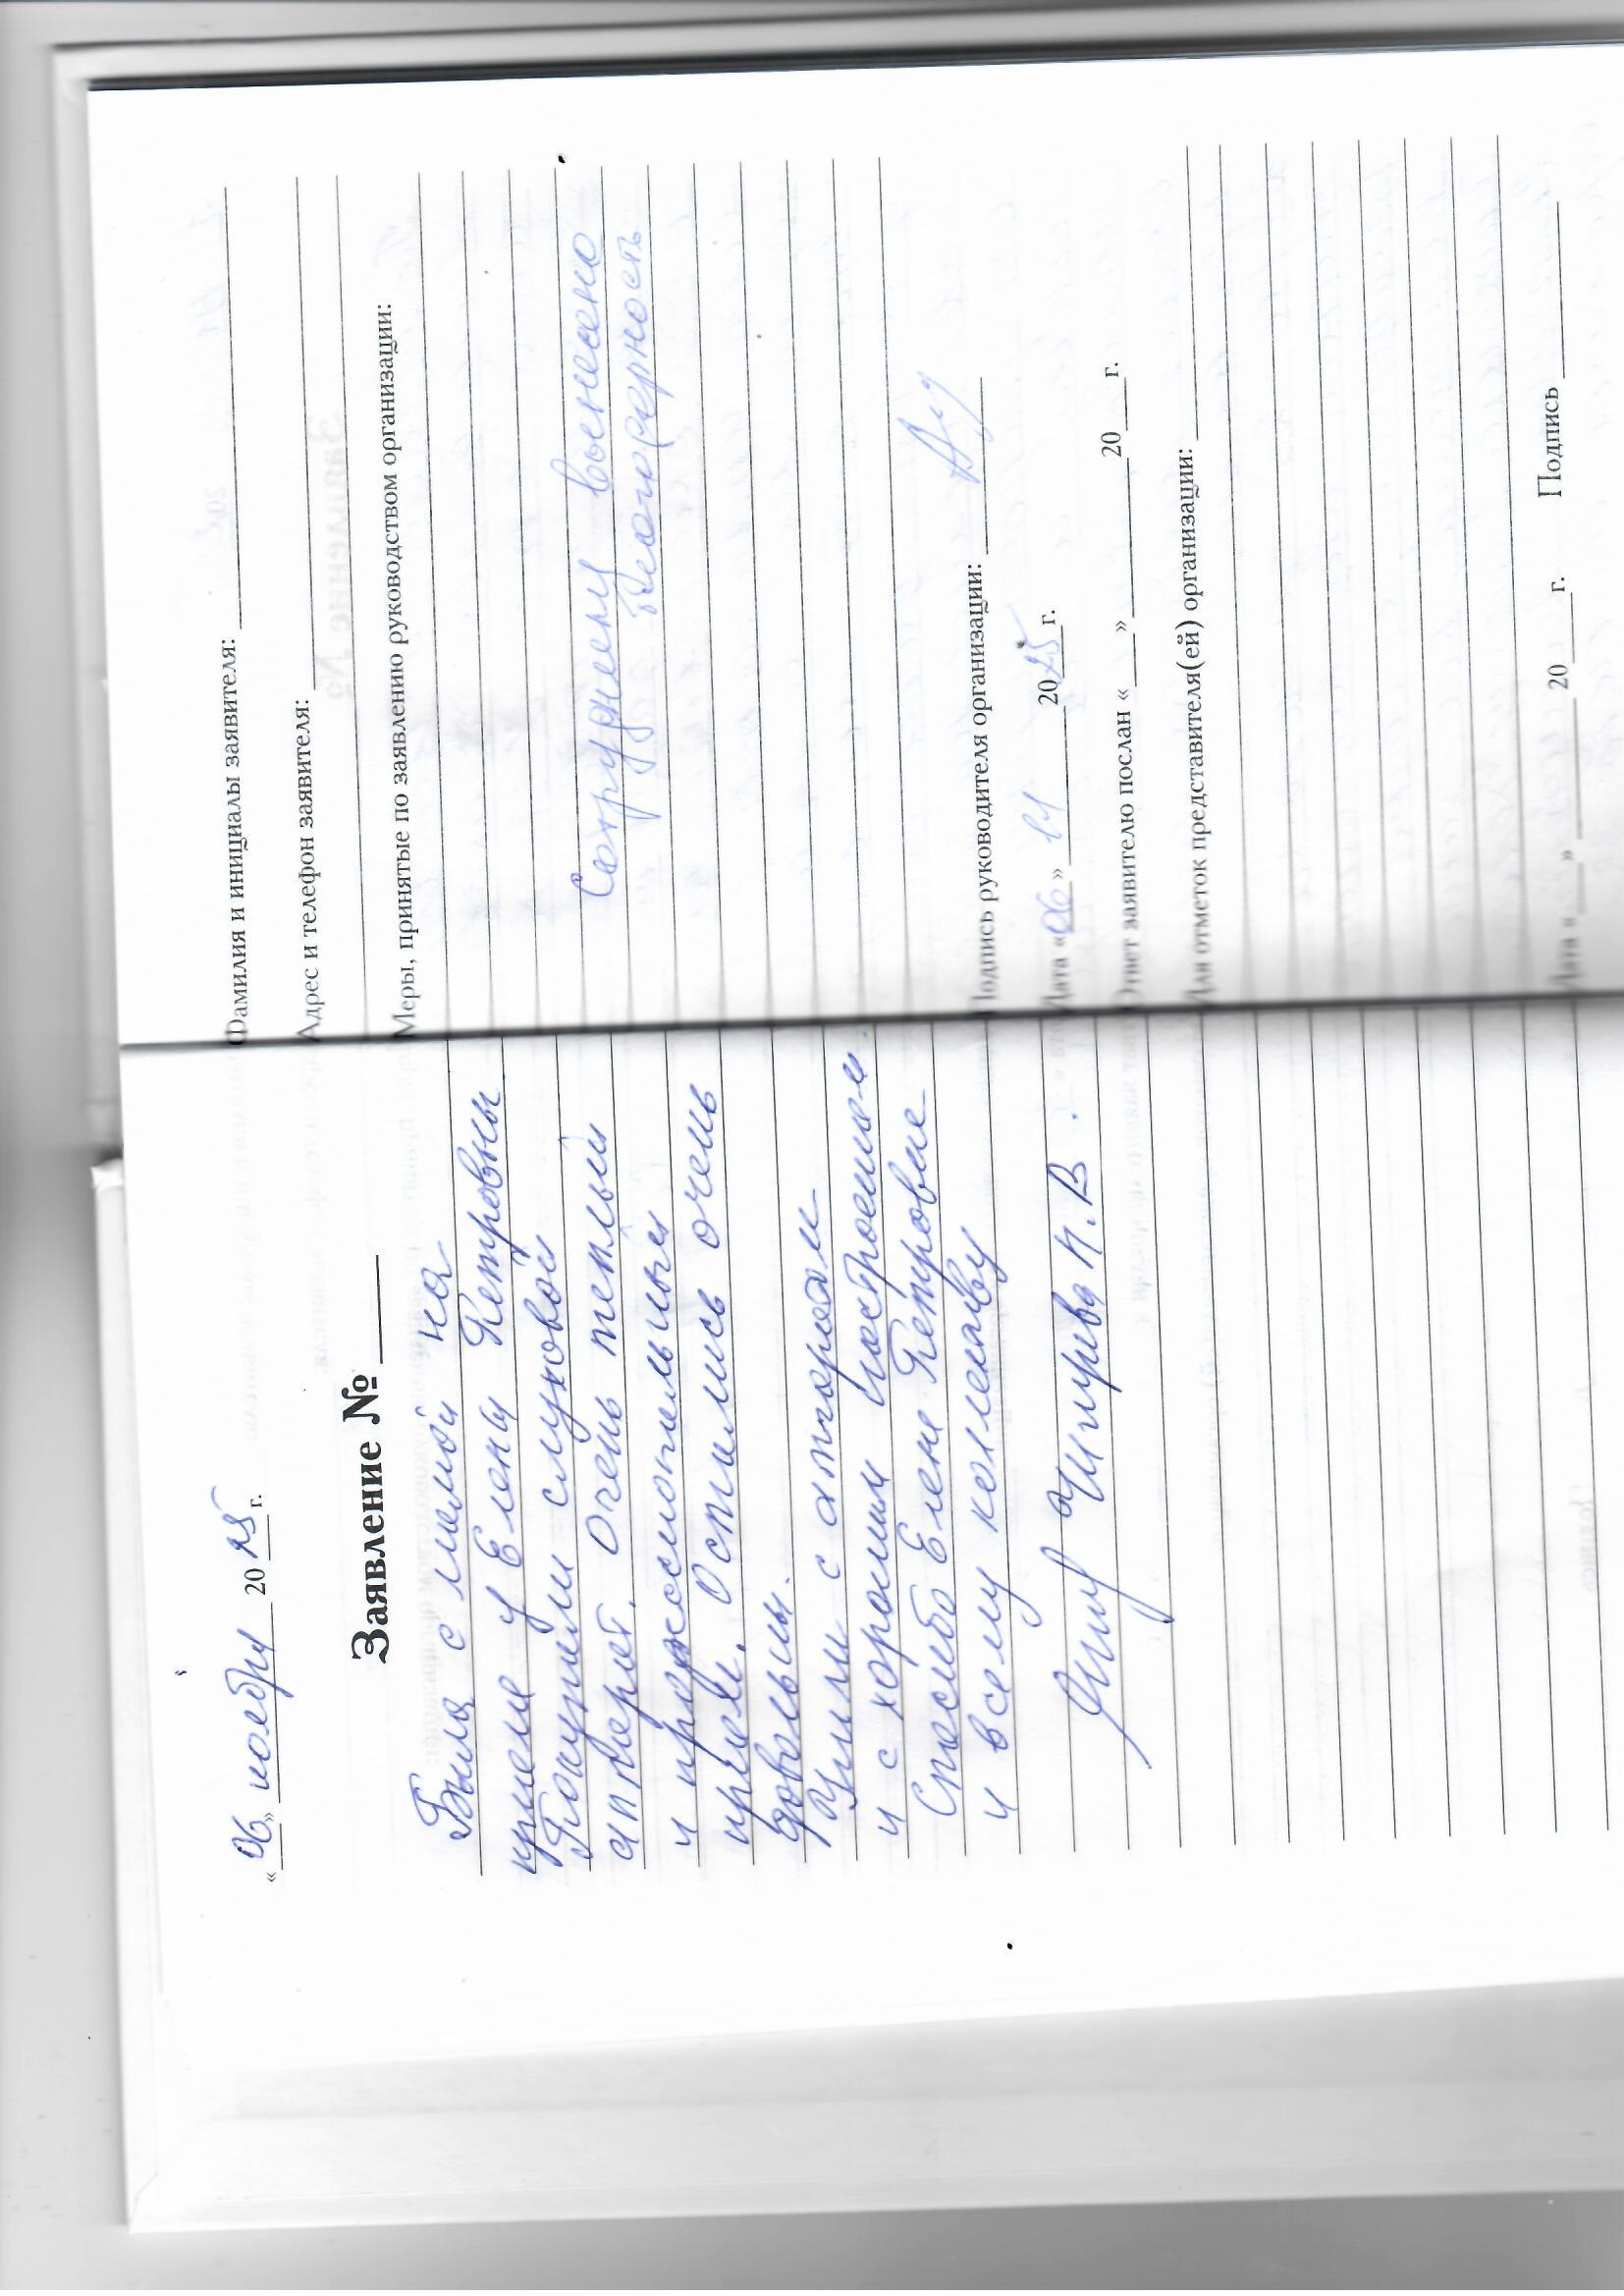 «06» ноября 2025 г.
Заявление № ____
Была с мамой на
приеме у Елены Петровны
Покупали слуховой
аппарат. Очень теплый
и профессиональный
прием. Остались очень
довольны.
Ушли с аппаратом
и с хорошим настроением.
Спасибо Елене Петровне
и всему коллективу
Н.В.
Фамилия и инициалы заявителя:
Адрес и телефон заявителя:
Меры, принятые по заявлению руководством организации:
Сотруднику вынесено
благодарность
Подпись руководителя организации:
Дата «06» 11 2025 г.
Ответ заявителю послан «___» ____ 20___ г.
Для отметок представителя(ей) организации:
Дата «___» ____ 20___ г. Подпись